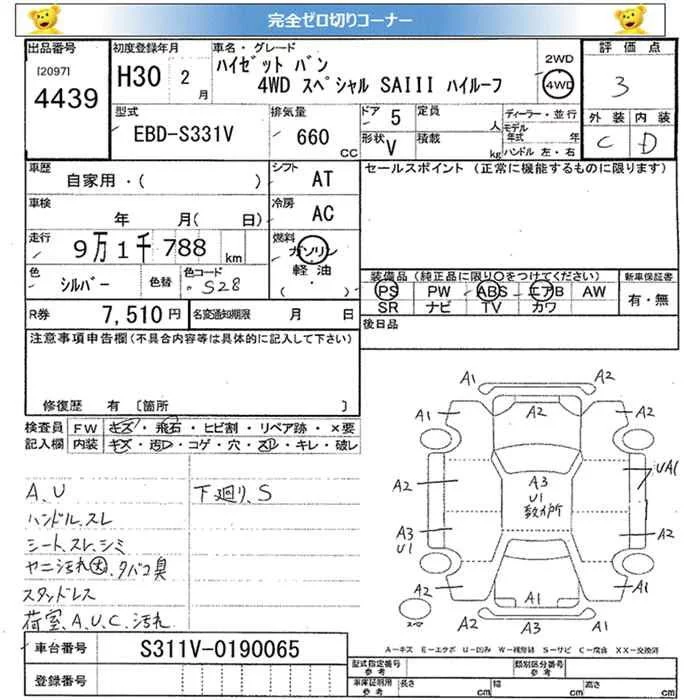 完全ゼロ切りコーナー
出品番号
[2097]
4439
初度登録年月
H30 2 月
車名・グレード
ハイゼット バン
4WD スペシャル SAIII ハイルーフ
2WD
4WD
評価点
3
型式
EBD-S331V
排気量
660 CC
ドア 5
形状 V
定員 人
積載 kg
ディーラー・並行
モデル年式 年
ハンドル 左・右
外装 内装
C D
車歴
自家用・( )
シフト
AT
セールスポイント (正常に機能するものに限ります)
車検
年 月( 日)
冷房
AC
走行
9万1千788 km
燃料
ガソリン
軽油
( )
色
シルバー
色替
色コード
S28
装備品 (純正品に限り○をつけてください)
PS PW ABS エアB AW
SR ナビ TV カワ
新車保証書
有・無
R券 7,510 円
名変通知期限 月 日
後日品
注意事項申告欄(不具合内容等は具体的に記入して下さい)
修復歴 有 [箇所 ]
検査員記入欄
FW キズ・飛石・ヒビ割・リペア跡・×要
内装 キズ・汚レ・コゲ・穴・スレ・キレ・破レ
A、U
ハンドル、スレ
シート、スレ、シミ
ヤニ汚れ大、タバコ臭
スタッドレス
荷室、A、U、C、汚れ
下廻り、S
A1 A2
A1 A2 A2
A2 A3 U1 数ヶ所 UA1
A3 U1 A2
A2 A1 A1
A2 A3 A1
A-キズ E-エクボ U-凹み W-補修跡 S-サビ C-腐食 XX-交換済
車台番号
S311V-0190065
登録番号
型式指定番号 参考
類別区分番号 参考
車庫証明用 参考
長さ cm 幅 cm 高さ cm